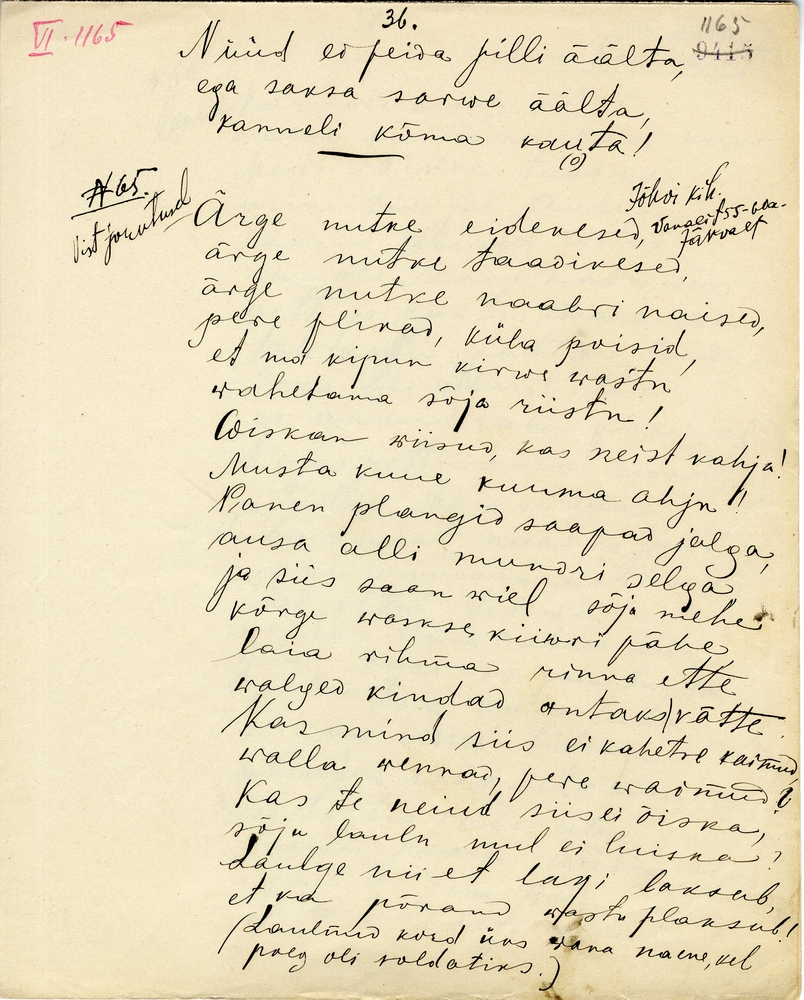 36.
VI. 1165
1165
9415
Nüüd ei peida pilli äälta,
ega saksa sarwe äälta,
kanneli kõma kauta!
(o)
№ 65.
Vist jorutused
Jõhvi kih.
Vanalt 55-60 a.
Ärge nutke eidekesed,
ärge nutke taadikesed,
ärge nutke naabri naised,
pere plikad, küla poisid,
et ma kipun kirwe wastu
wahetama sõja riistu!
Wiskan wiisud, kas neist kahju!
Musta kuue kuuma ahju!
Panen plangid saapad jalga,
ausa alli mundri selga
ja siis saan wiel sõja mehe
kõrge waskse kiiwri pähe,
laia rihma rinna ette
walged kindad antaks kätte.
Kas mind siis ei kahetse kaimud,
walla wennad, pere waimud?
Kas te neiud siis ei õiska,
sõja laulu mul ei luiska?
Laulge nii et lagi laksub,
et ka põrand wastu plaksub!
(Laulnud kord üks wana naene, kel
poeg oli soldatiks.)